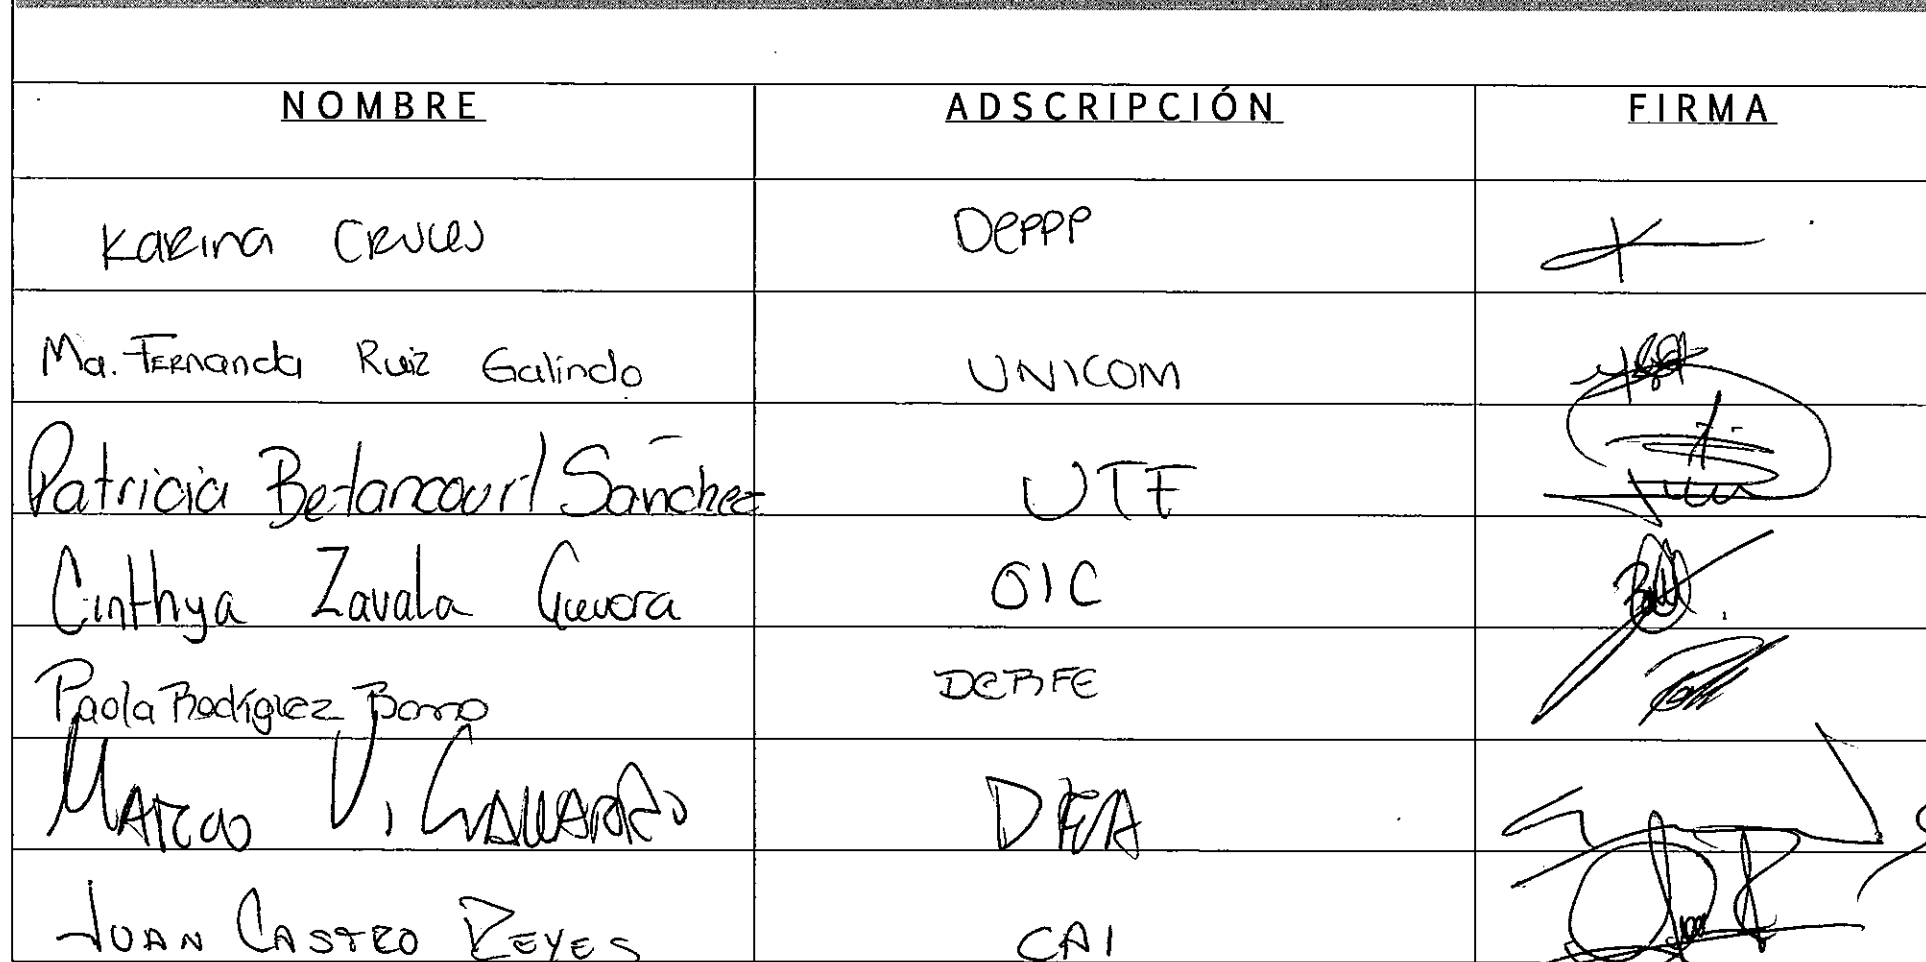 NOMBRE ADSCRIPCIÓN FIRMA
Karina Cruces DEPPP
Ma. Fernanda Ruiz Galindo UNICOM
Patricia Betancourt Sánchez UTF
Cinthya Zavala Guevara OIC
Paola Rodríguez DERFE
Marco V. Gallardo DEA
Juan Castro Reyes CAI